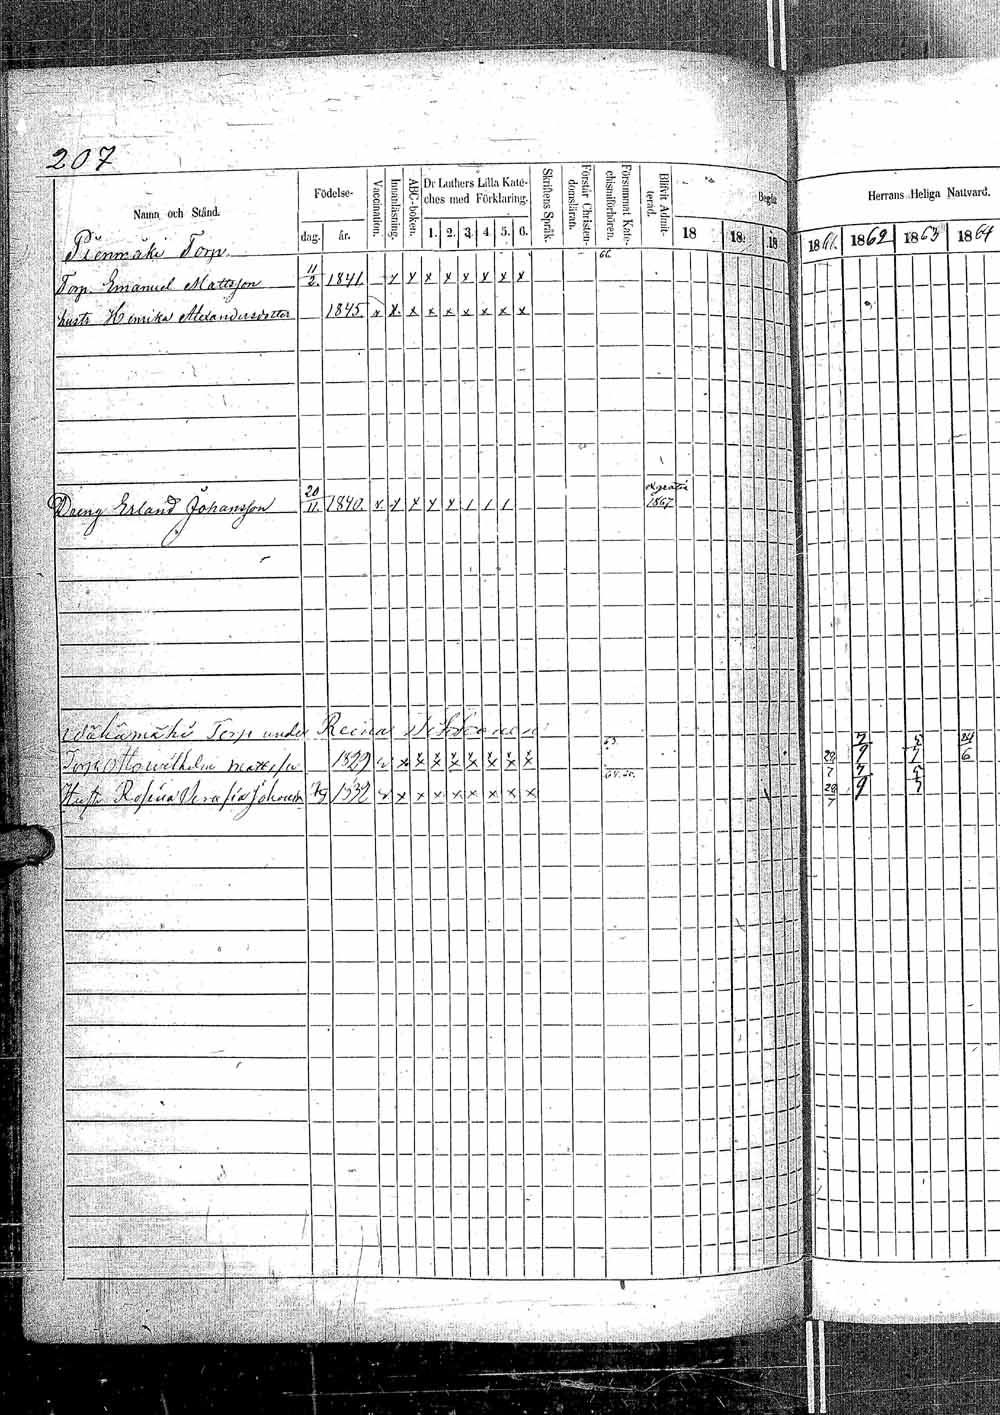 207
Namn och Stånd. Födelse- dag. år. Vaccination. Innanläsning. ABC-boken. Dr Luthers Lilla Kate- ches med Förklaring. 1. 2. 3. 4. 5. 6. Skriftens Språk. Förstår Christen- domsläran. Försummat Kate- chismiförhören. Blifvit Admit- terad. Begått 18 18 18 Herrans Heliga Nattvard. 1861. 1862 1863 1864
Pienmäki Torp. 66.
Torp. Emanuel Mattsson 11/2. 1841. x x x x x x x x
hustr Henrika Alexandersdotter 1845 x x x x x x x x x
Dreng Erland Johansson 20/11. 1840. x x x x x / / / 1867
Wähämäki Torp under Reina 63.
Torp. Otto Wilhelm Mattsson 1829 x x x x x x x x 29/7 7/9 5/7 24/6
Hustr Rosina Serafia Johansd 1832 x x x x x x x x 29/7 7/9